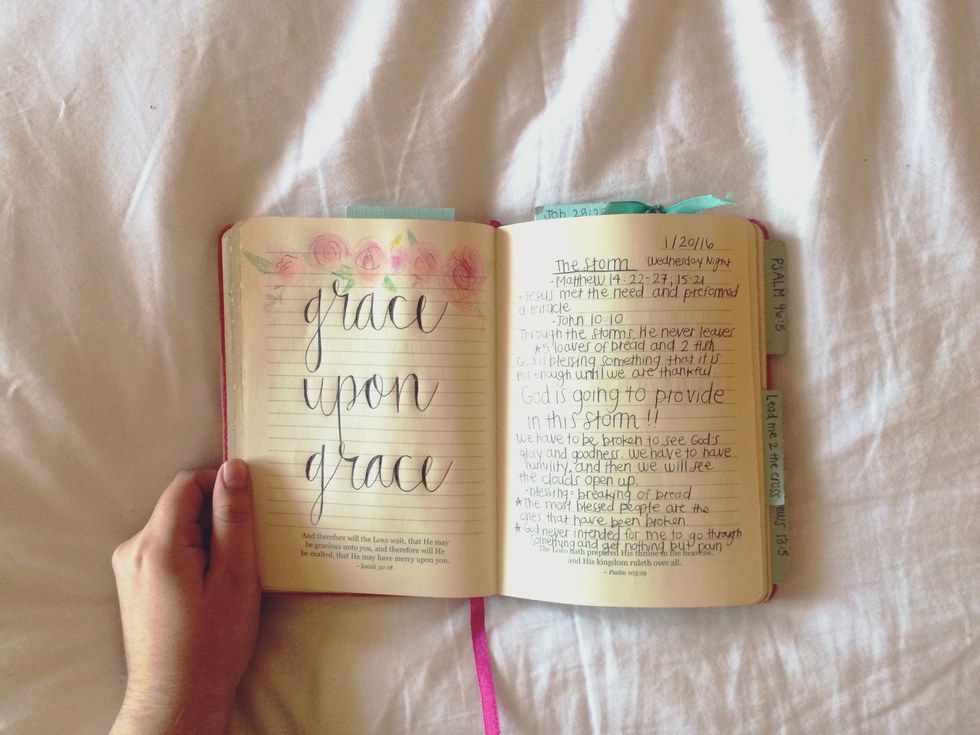 grace
upon
grace
And therefore will the LORD wait, that He may
be gracious unto you, and therefore will He
be exalted, that He may have mercy upon you.
~ Isaiah 30:18
1/20/16
The Storm Wednesday Night
- Matthew 14:22-27, 15-21
· Jesus met the need and preformed
a miracle
- John 10:10
Through the storms, He never leaves
★5 loaves of bread and 2 fish
God is blessing something that it is
not enough until we are thankful.
God is going to provide
in this storm!!
We have to be broken to see God's
glory and goodness. We have to have
humility, and then we will see
the clouds open up.
· blessing = breaking of bread
★The most blessed people are the
ones that have been broken.
★God never intended for me to go through
something and get nothing but pain
The LORD hath prepared His throne in the heavens,
and His kingdom ruleth over all.
~ Psalm 103:19
PSALM 46:5
Lead me 2 the cross
13:5